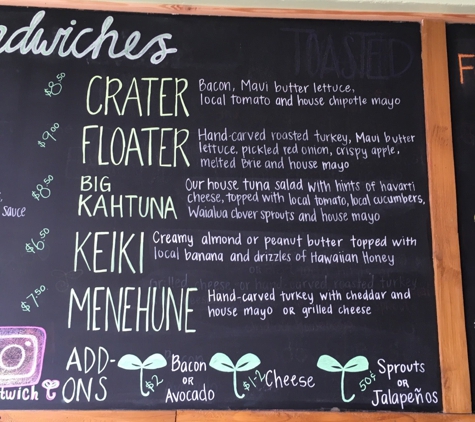 andwiches
TOASTED
$8.50
CRATER
Bacon, Maui butter lettuce,
local tomato and house chipotle mayo
$9.00
FLOATER
Hand-carved roasted turkey, Maui butter
lettuce, pickled red onion, crispy apple,
melted Brie and house mayo
sauce
$8.50
BIG
KAHTUNA
Our house tuna salad with hints of havarti
cheese, topped with local tomato, local cucumbers,
Waialua clover sprouts and house mayo
$6.50
KEIKI
Creamy almond or peanut butter topped with
local banana and drizzles of Hawaiian Honey
$7.50
MENEHUNE
Hand-carved turkey with cheddar and
house mayo OR grilled cheese
twich
ADD-
ONS
$2
Bacon
OR
Avocado
$1-2
Cheese
50¢
Sprouts
OR
Jalapeños
F